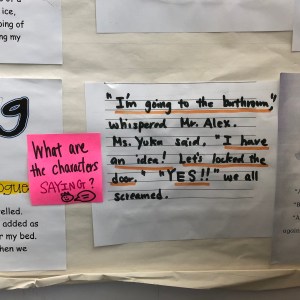 of a
ice,
ping of
ng my
g
ogue
elled.
added as
r my bed.
hen we
What are
the characters
SAYING?
"I'm going to the bathroom,"
whispered Mr. Alex.
Ms. Yuka said, "I have
an idea! Let's locked the
door." "YES!!" we all
screamed.